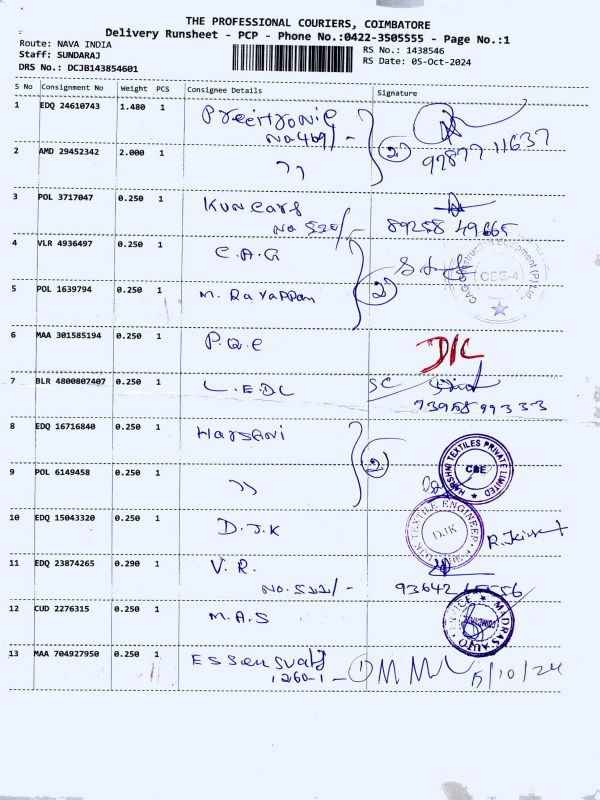 THE PROFESSIONAL COURIERS, COIMBATORE
Delivery Runsheet - PCP - Phone No.:0422-3505555 - Page No.:1
Route: NAVA INDIA RS No.: 1438546
Staff: SUNDARAJ RS Date: 05-Oct-2024
DRS No.: DCJB143854601
S No Consignment No Weight PCS Consignee Details Signature
1 EDQ 24610743 1.480 1
No 409/-
97877 11637
2 AMD 29452342 2.000 1 " 2
3 POL 3717047 0.250 1
No 520/- 89258 49665
4 VLR 4936497 0.250 1 C.A.G
CBE-4
5 POL 1639794 0.250 1 M. Rayappan 2
6 MAA 301585194 0.250 1 P.Q.C D/C
7 BLR 4800807407 0.250 1 L.E.DC SC
73958 99333
8 EDQ 16716840 0.250 1 Harshni
HARSHNI TEXTILES PRIVATE LIMITED CBE
9 POL 6149458 0.250 1 " 2
10 EDQ 15043320 0.250 1 D.J.K
DJK TEXTILE ENGINEER DJK
11 EDQ 23874265 0.290 1 V.R.
No.522/- 93642
12 CUD 2276315 0.250 1 M.A.S
MADRAS AUTO
13 MAA 704927950 0.250 1
1260-1 5/10/24